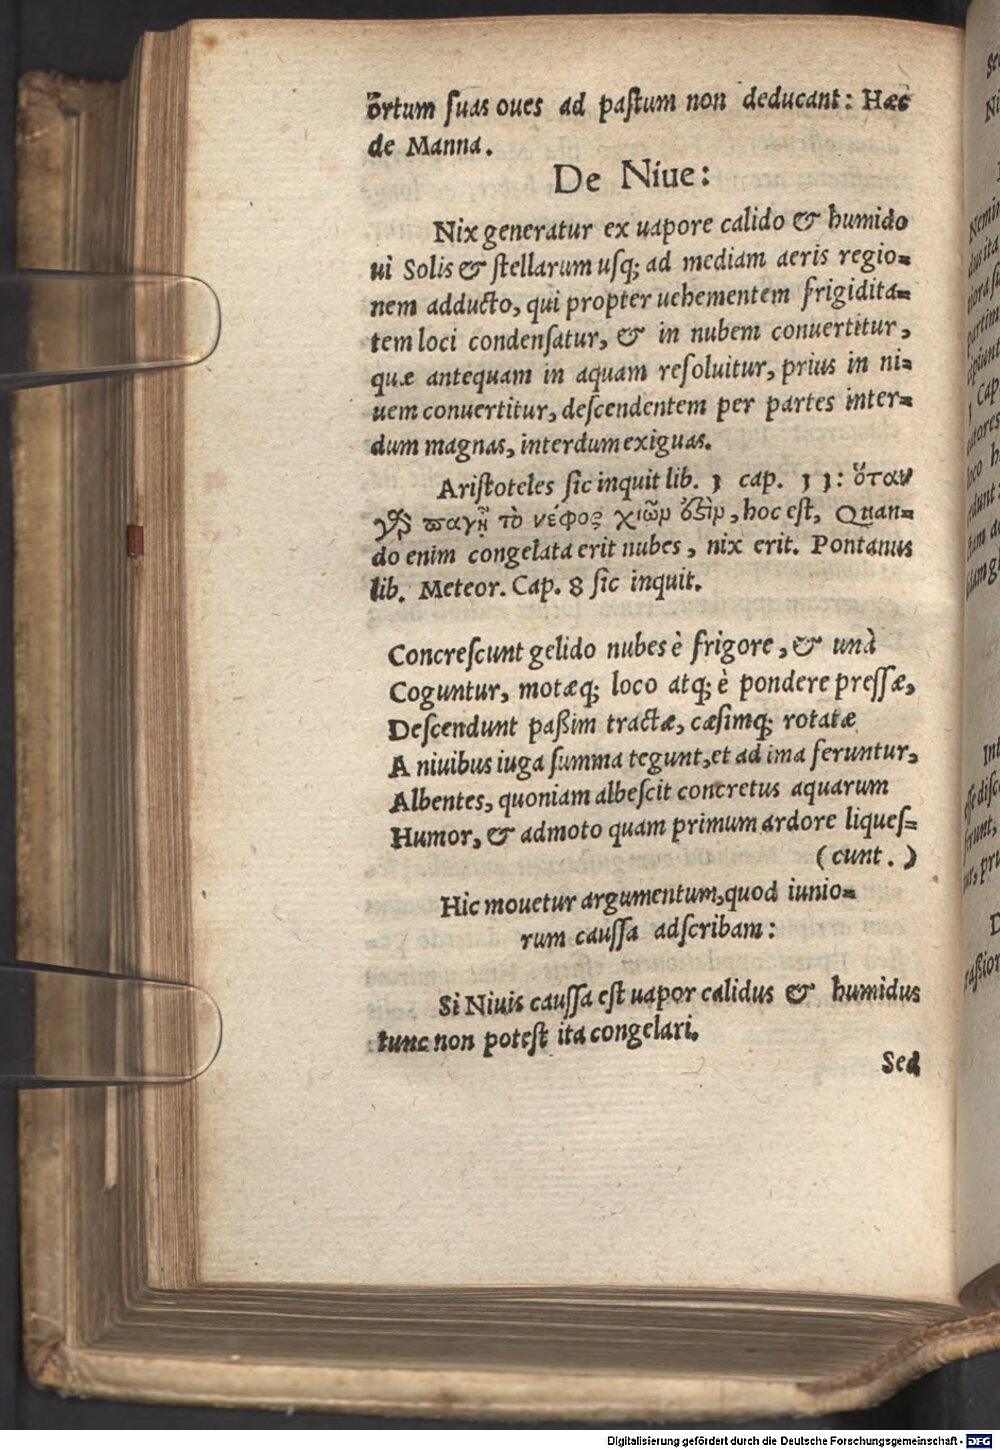 ortum suas oues ad pastum non deducant: Hæc
de Manna.
De Niue:
Nix generatur ex uapore calido & humido
ui Solis & stellarum usq; ad mediam aeris regio=
nem adducto, qui propter uehementem frigidita=
tem loci condensatur, & in nubem conuertitur,
quæ antequam in aquam resoluitur, prius in ni=
uem conuertitur, descendentem per partes inter=
dum magnas, interdum exiguas.
Aristoteles sic inquit lib. 1 cap. 11: ὅταν
γὰρ παγῇ τὸ νέφος χιών ἐστὶν, hoc est, Quan=
do enim congelata erit nubes, nix erit. Pontanus
lib. Meteor. Cap. 8 sic inquit.
Concrescunt gelido nubes è frigore, & unà
Coguntur, motæq; loco atq; è pondere pressæ,
Descendunt paßim tractæ, cæsimq; rotatæ
A niuibus iuga summa tegunt, et ad ima feruntur,
Albentes, quoniam albescit concretus aquarum
Humor, & admoto quam primum ardore liques=
(cunt.)
Hic mouetur argumentum, quod iunio=
rum caussa adscribam:
Si Niuis caussa est uapor calidus & humidus
tunc non potest ita congelari.
Sed
Se
Ni
Nemin
dus ita
partim
1 Cap
loco h
Int
esse disc
ferunt,
D
raßior
Digitalisierung gefördert durch die Deutsche Forschungsgemeinschaft - DFG